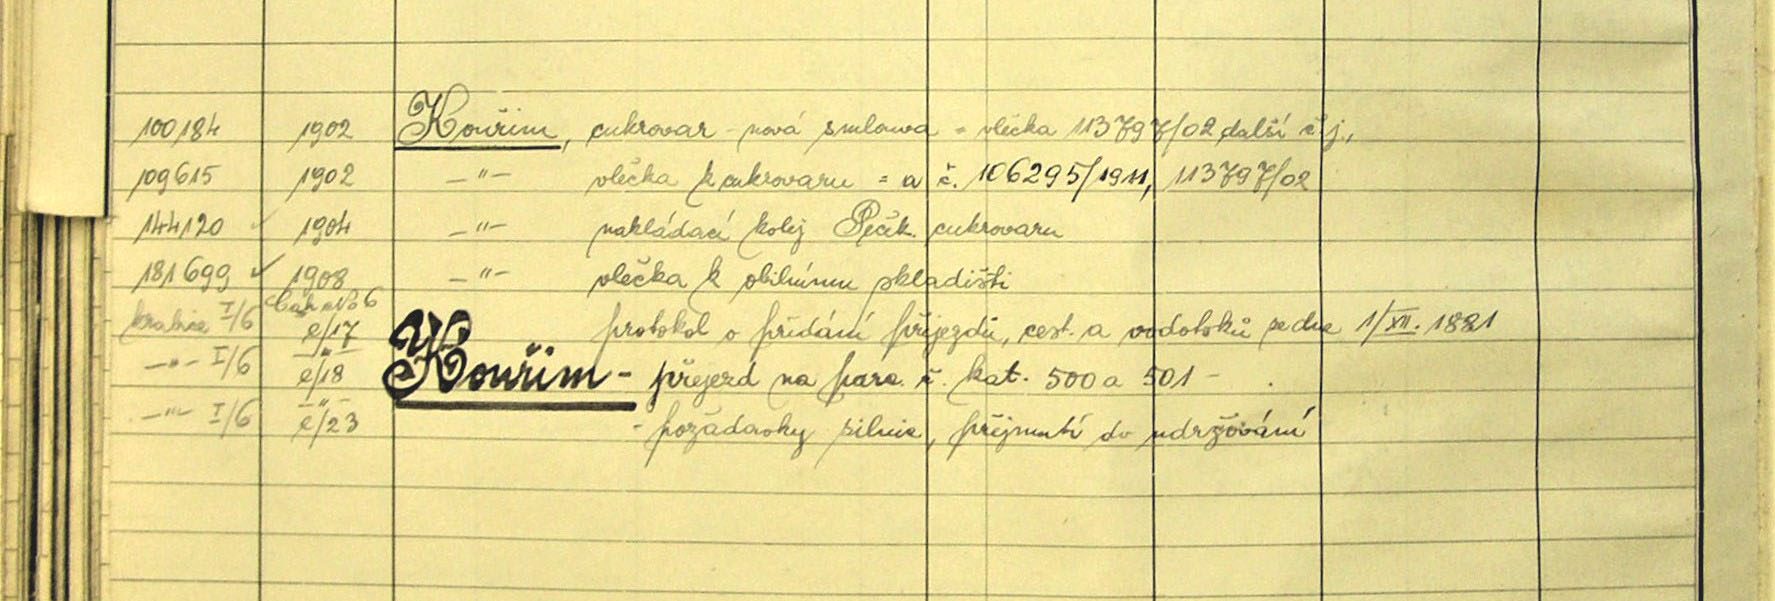 100184 1902 Kouřim, cukrovar - nová smlouva = vlečka 113797/02 další č.j.,
109615 1902 -"- vlečka k cukrovaru = a č. 106295/1911, 113797/02
144120 1904 -"- nakládací kolej Peček. cukrovaru
181699 ✓ 1908 -"- vlečka k obilnímu skladišti
krabice I/6 No 6 e/17 protokol o přidání příjezdů, cest. a vodotoků ze dne 1/XII. 1881
-"- I/6 e/18 Kouřim - přejezd na parc. č. kat. 500 a 501 -
-"- I/6 -"- e/23 - požadavky silnic, přijmutí do udržování